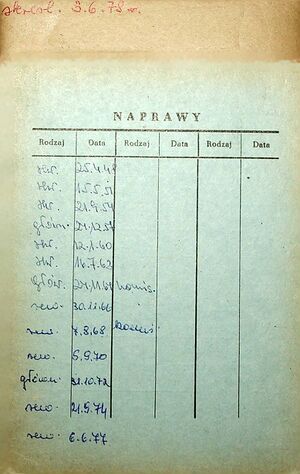 skreśl. 3.6.78 r.
NAPRAWY
Rodzaj Data Rodzaj Data Rodzaj Data
śr. 25.4.48
śr. 15.5.51
śr. 21.9.54
główn. 21.12.57
śr. 12.1.60
śr. 16.7.62
Główn. 24.11.64
rew. 30.11.66
rew. 7.8.68
rew. 5.9.70
główn. 31.10.72
rew. 21.9.74
rew. 6.6.77